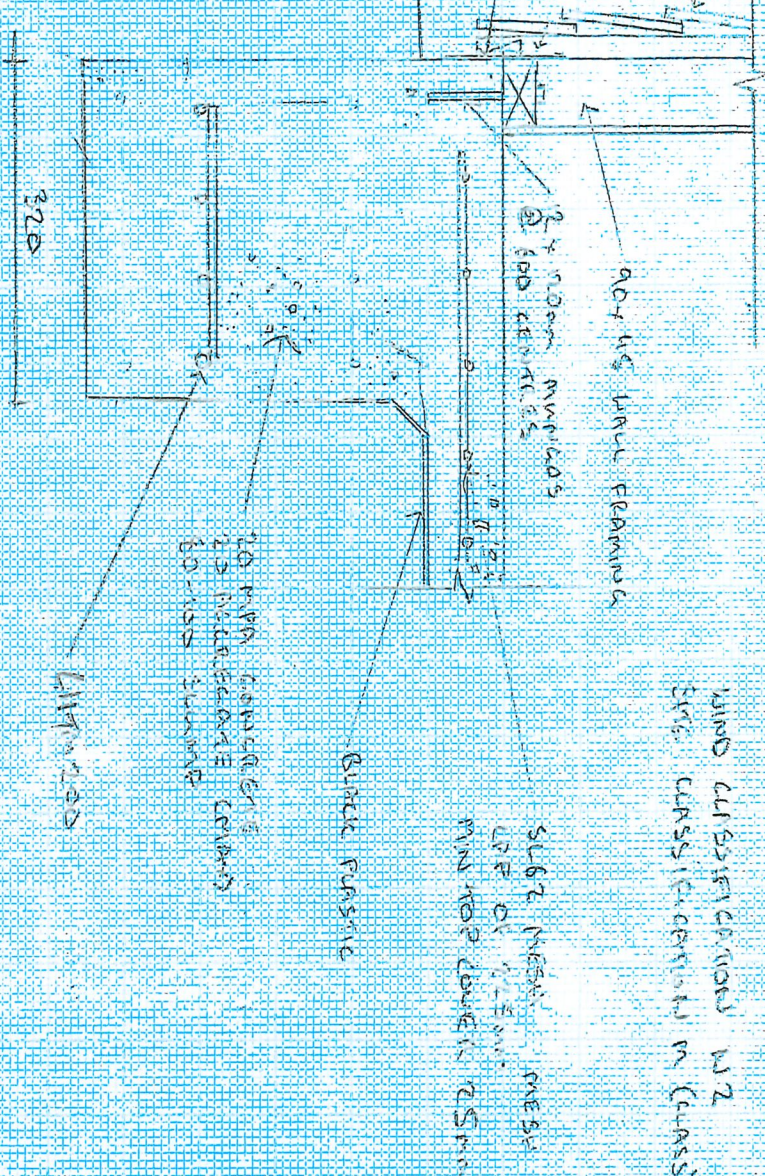 WIND CLASSIFICATION N2
SITE CLASSIFICATION M (CLASS
90 x 45 WALL FRAMING
@ 600 CENTRES
SL62 MESH MESH
LAP OF 225mm.
MIN TOP COVER 25mm
BLACK PLASTIC
20 MPA CONCRETE
20 AGGREGATE
80-100 SLUMP
320